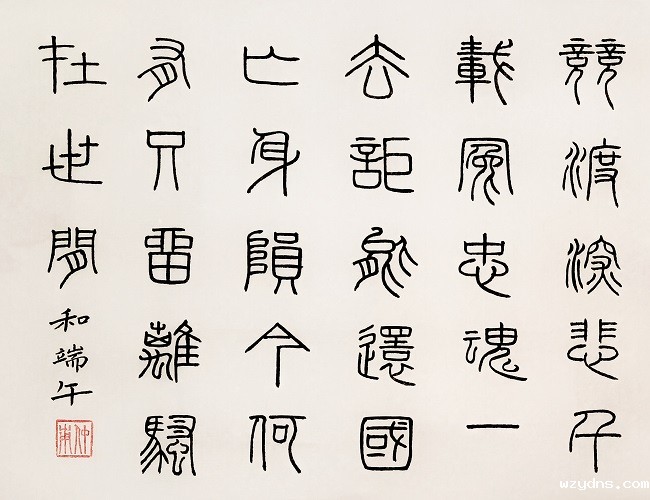 競渡深悲千
載冤忠魂一
去詎能還國
亡身隕今何
有只留離騷
在世間
和端午
仲甫
wzydns.com